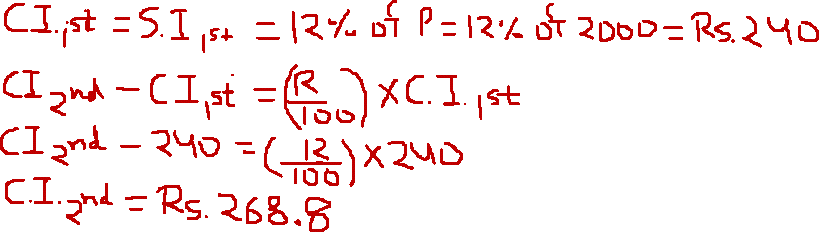 C.I.1st = S.I 1st = 12% of P = 12% of 2000 = Rs. 240
CI 2nd - CI 1st = (R/100) × C.I. 1st
CI 2nd - 240 = (12/100) × 240
C.I. 2nd = Rs. 268.8